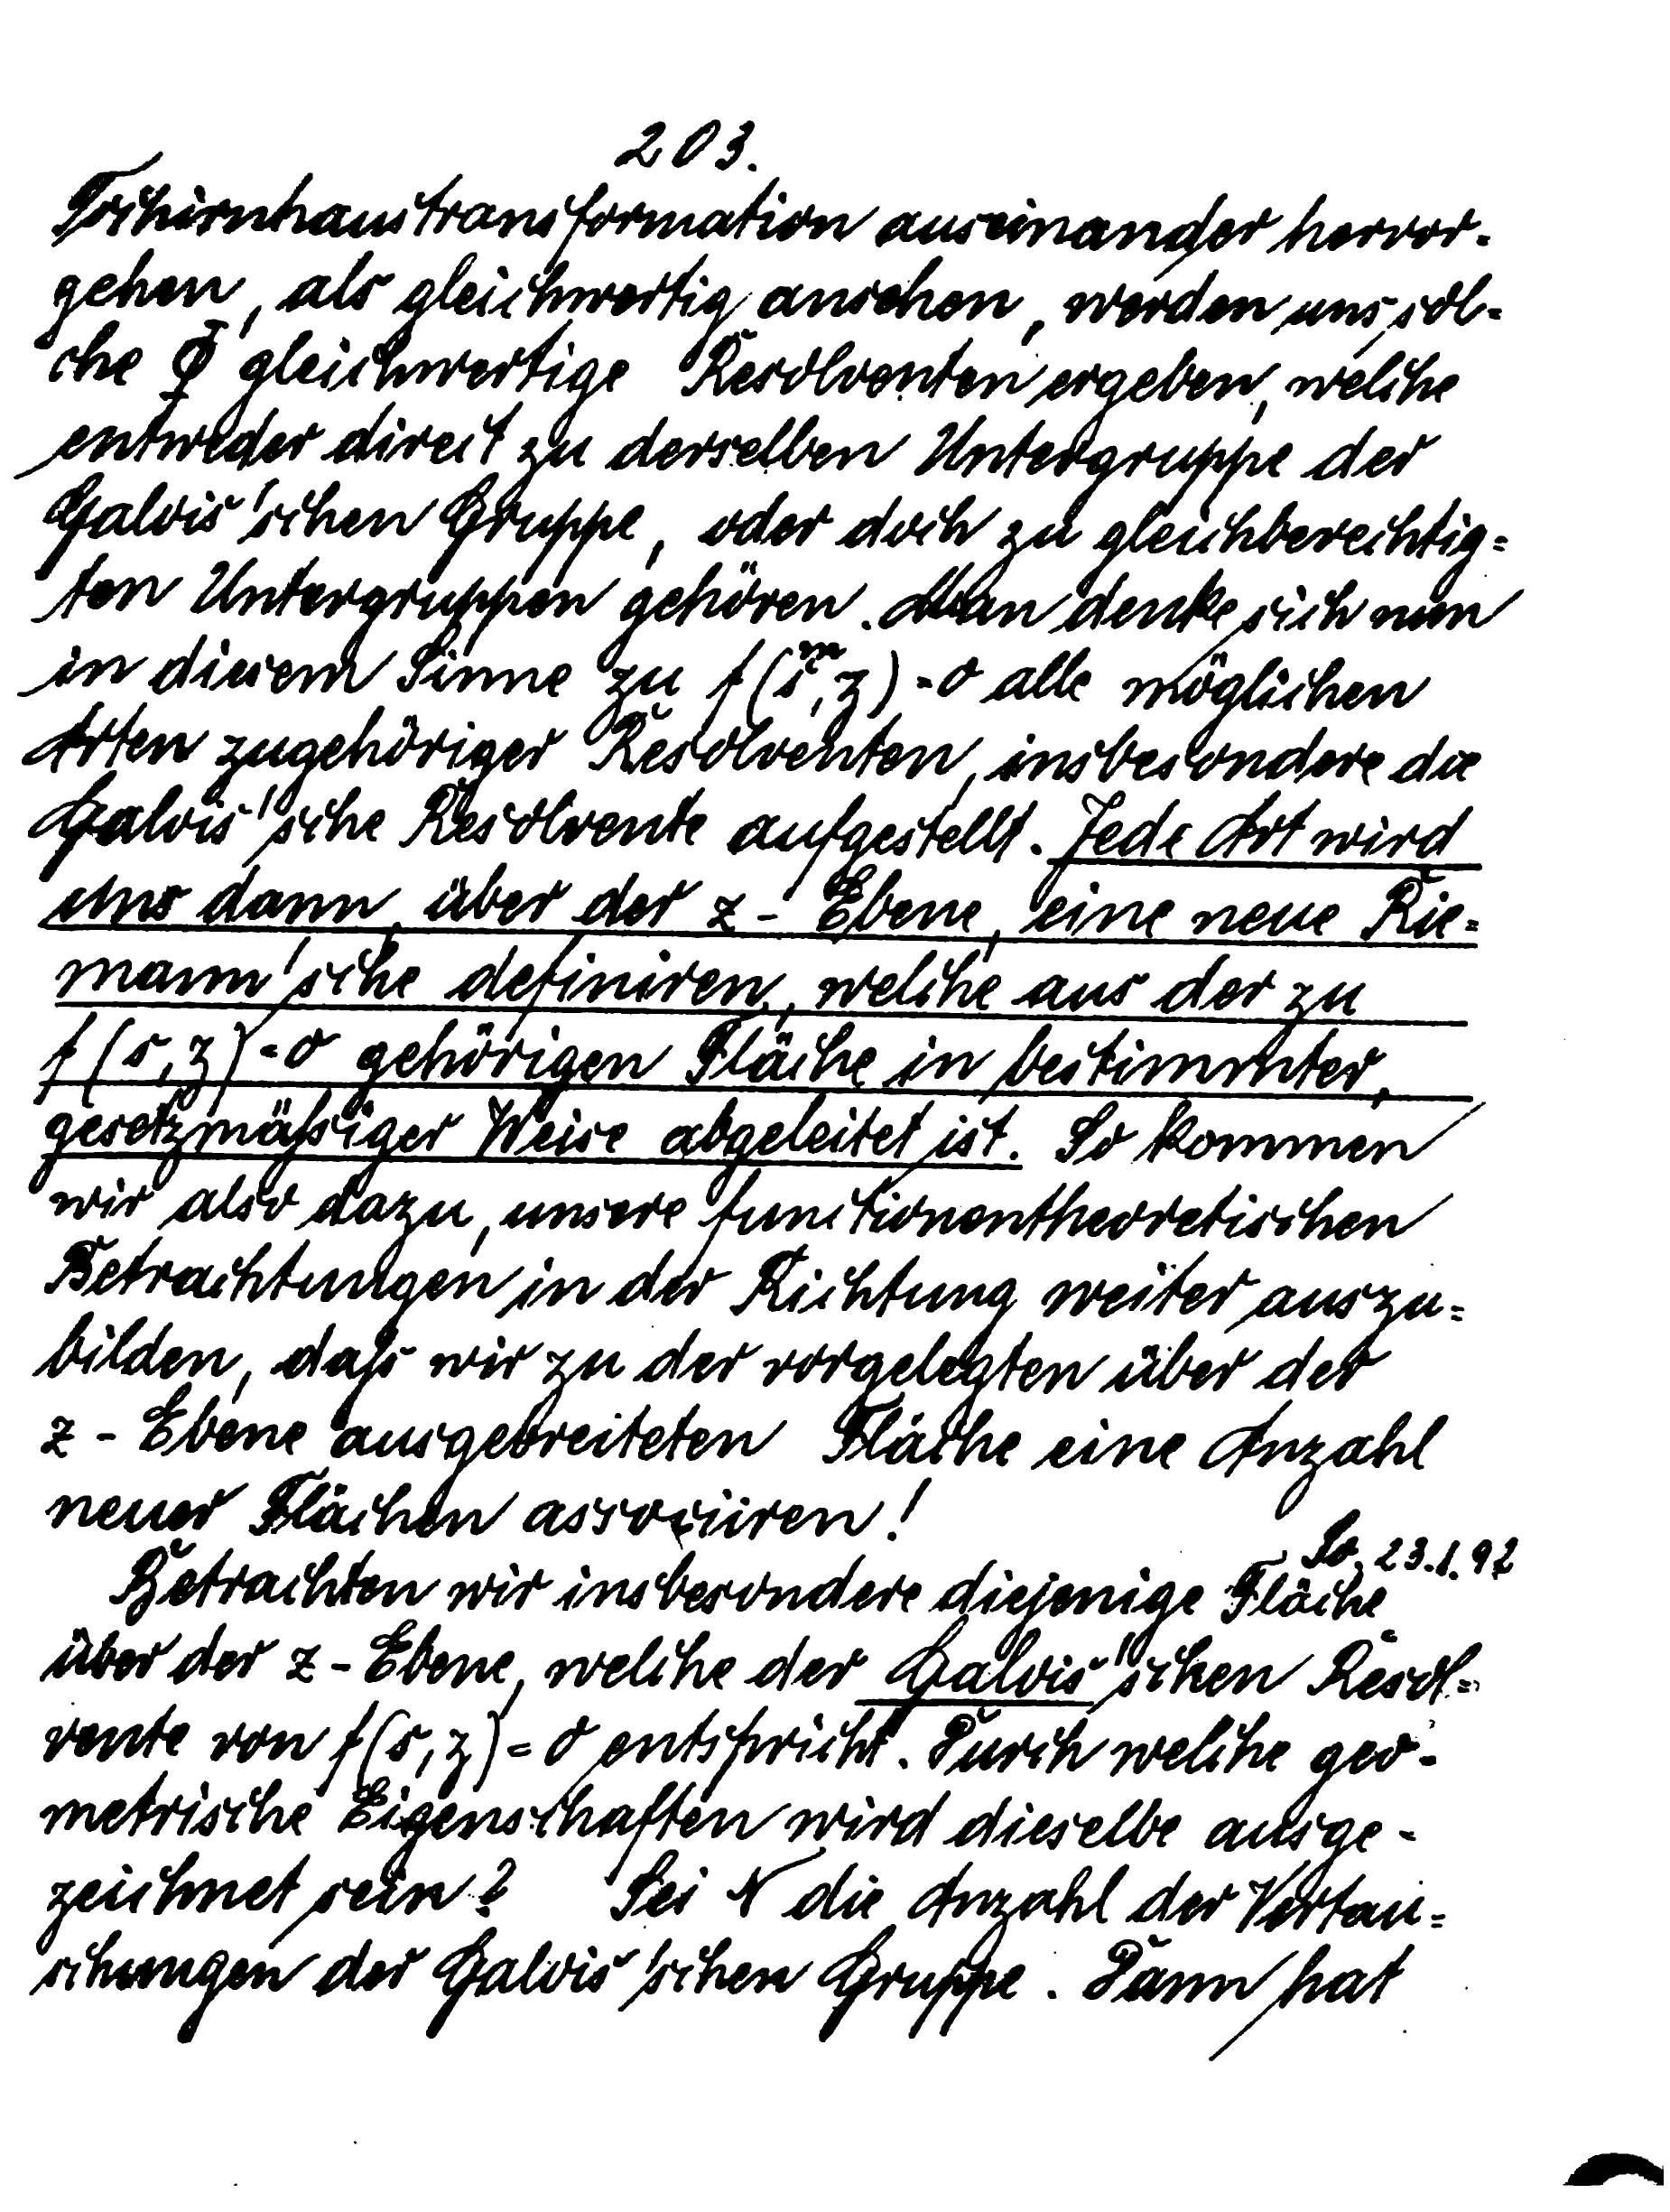 203.
Tschirnhaustransformation auseinander hervor-
gehen, als gleichwertig ansehen, werden uns sol-
che Φ gleichwertige Resolventen ergeben, welche
entweder direct zu derselben Untergruppe der
Galois'schen Gruppe, oder doch zu gleichberechtig=
ten Untergruppen gehören. Man denke sich nun
in diesem Sinne zu f(s^m, z)=0 alle möglichen
Arten zugehöriger Resolventen, insbesondere die
Galois'sche Resolvente aufgestellt. Jede Art wird
uns dann, über der z-Ebene, eine neue Rie=
mann'sche definiren, welche aus der zu
f(s,z)=0 gehörigen Fläche in bestimmter,
gesetzmäßiger Weise abgeleitet ist. So kommen
wir also dazu, unsere functionentheoretischen
Betrachtungen in der Richtung weiter auszu=
bilden, daß wir zu der vorgelegten über der
z-Ebene ausgebreiteten Fläche eine Anzahl
neuer Flächen associiren!
So. 23.1.92
Betrachten wir insbesondere diejenige Fläche
über der z-Ebene, welche der Galois'schen Resol=
vente von f(s,z)=0 entspricht. Durch welche geo-
metrische Eigenschaften wird dieselbe ausge-
zeichnet sein? Sei N die Anzahl der Vertau=
schungen der Galois'schen Gruppe. Dann hat